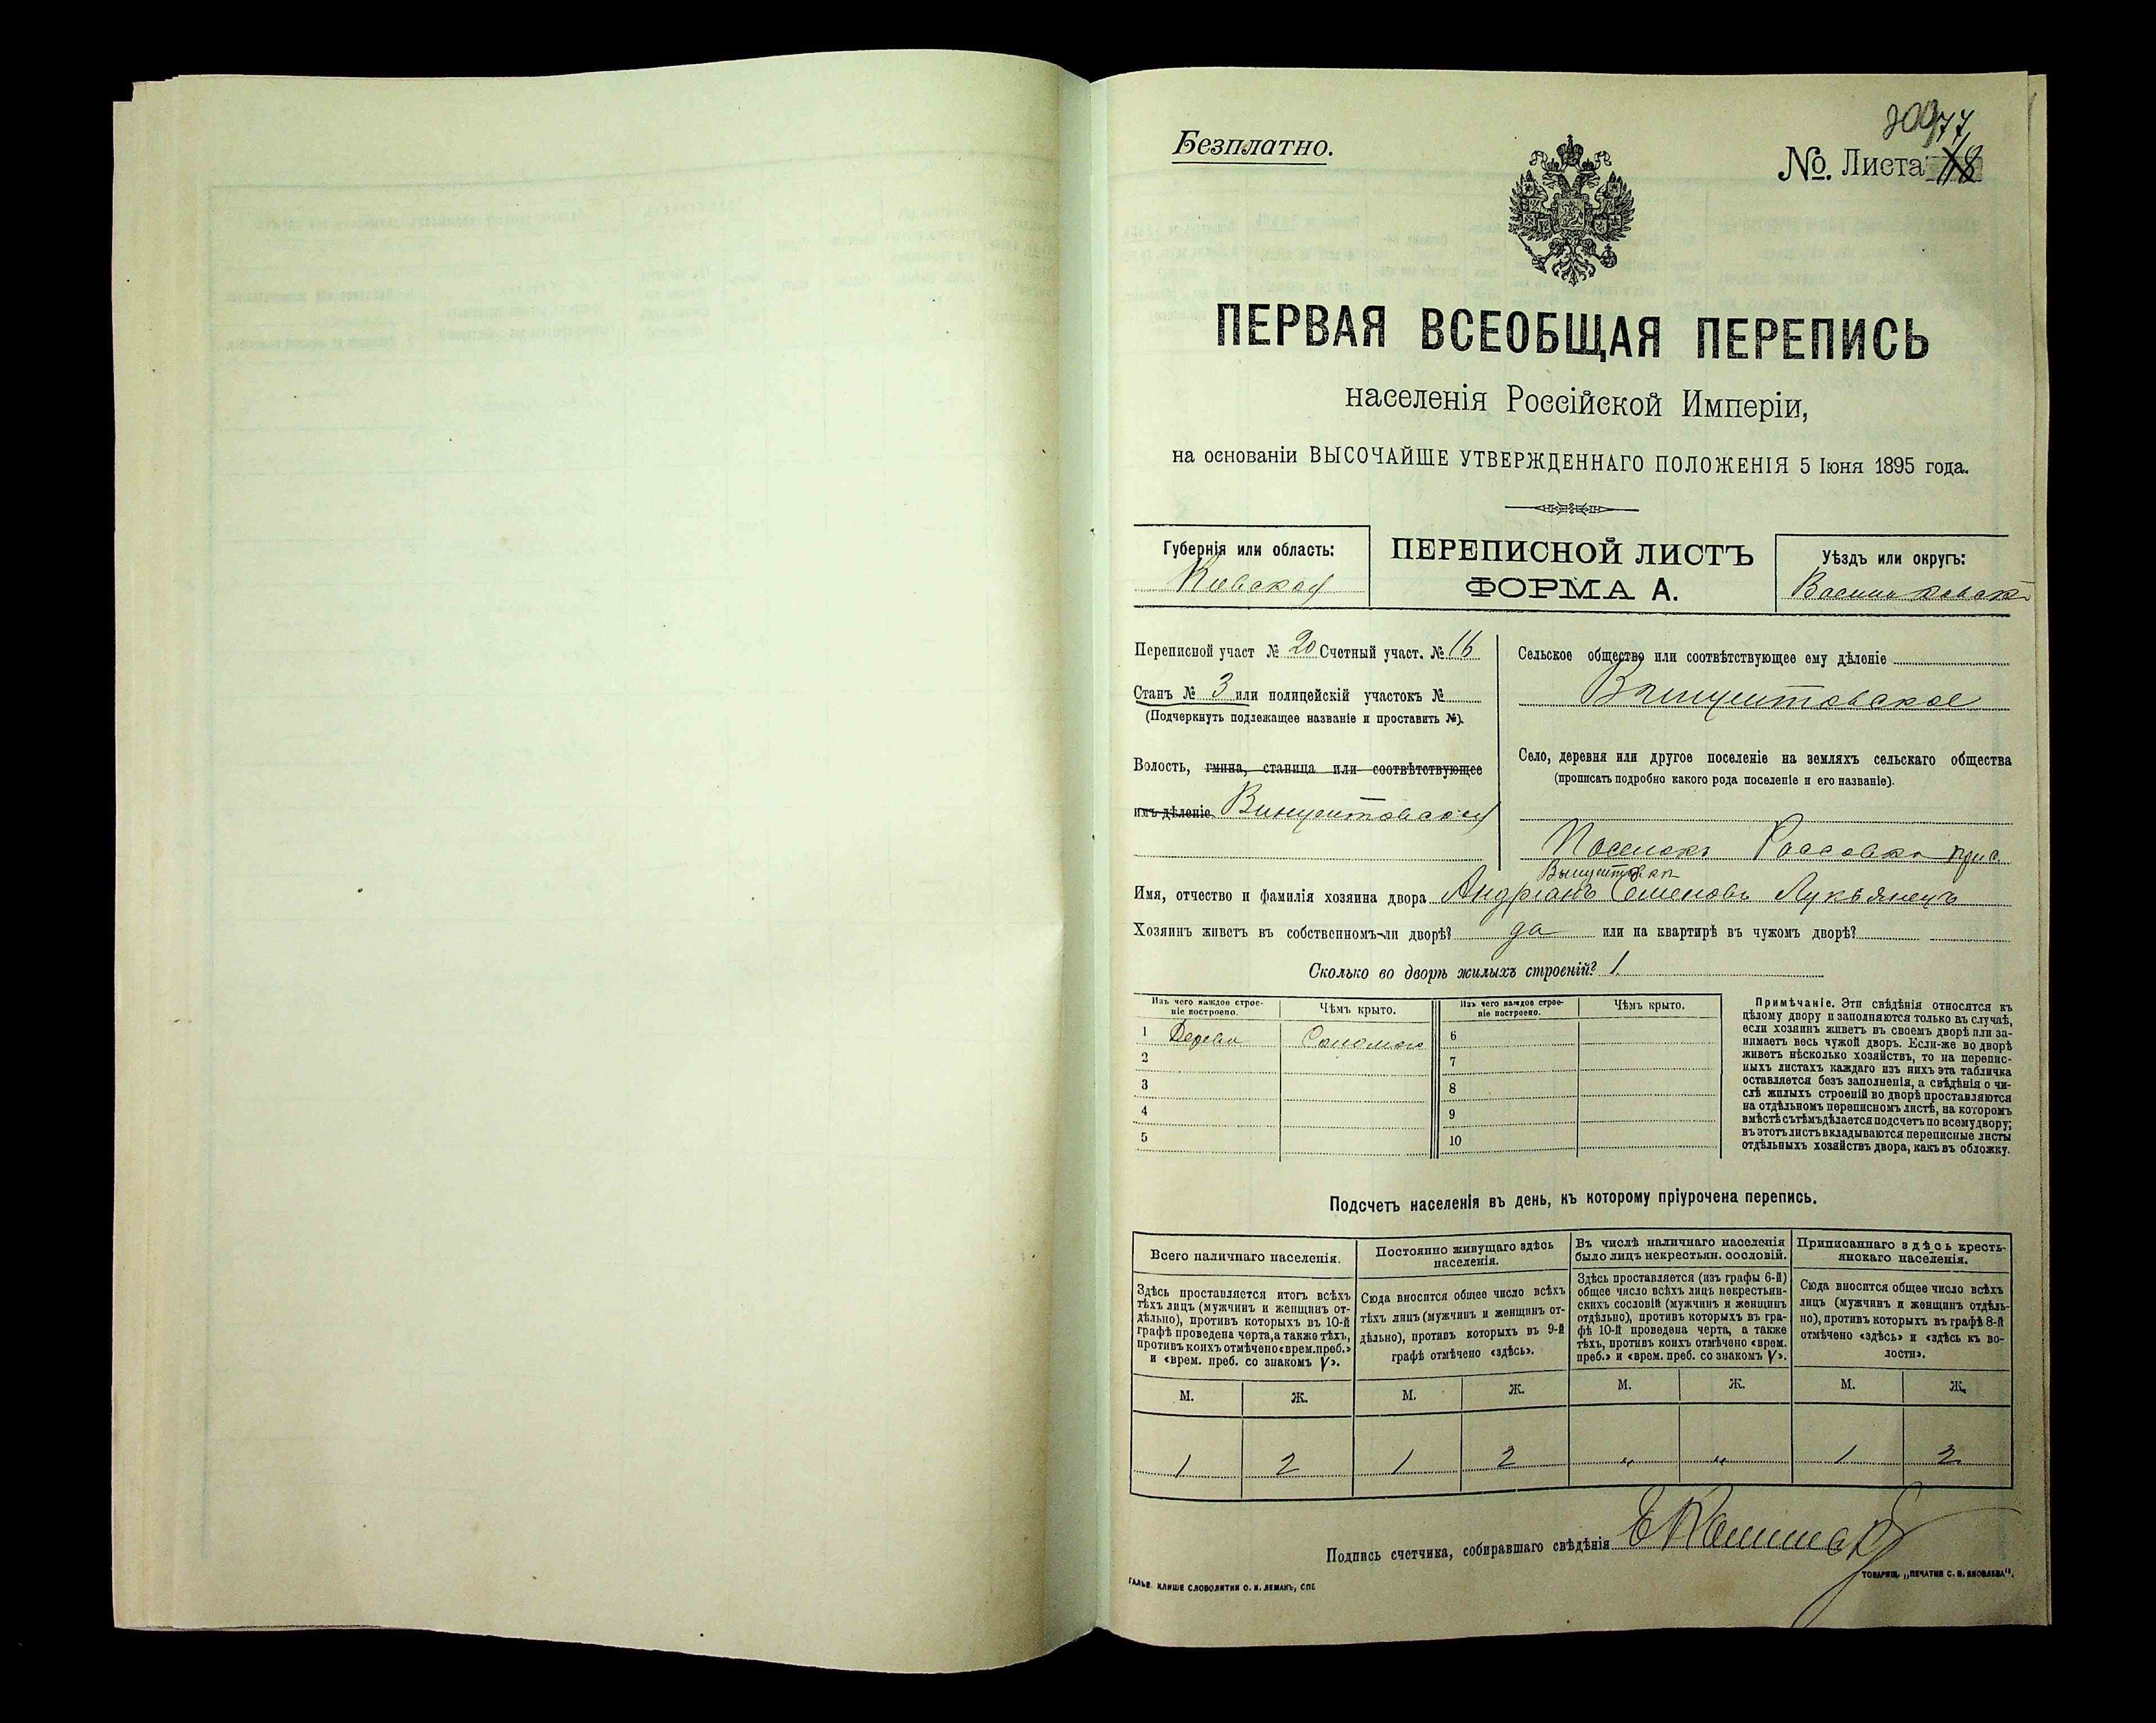 209
77
Безплатно.
№. Листа 78
ПЕРВАЯ ВСЕОБЩАЯ ПЕРЕПИСЬ
населенія Россійской Имперіи,
на основаніи ВЫСОЧАЙШЕ УТВЕРЖДЕННАГО ПОЛОЖЕНІЯ 5 Іюня 1895 года.
Губернія или область:
Кіевская
ПЕРЕПИСНОЙ ЛИСТЪ
ФОРМА А.
Уѣздъ или округъ:
Васильковскій
Переписной участ № 20 Счетный участ. № 16
Станъ № 3 или полицейскій участокъ №
(Подчеркнуть подлежащее названіе и проставить №).
Волость, гмина, станица или соотвѣтствующее
имъ дѣленіе Винцентовская
Сельское общество или соотвѣтствующее ему дѣленіе
Винцентовское
Село, деревня или другое поселеніе на земляхъ сельскаго общества
(прописать подробно какого рода поселеніе и его названіе).
Поселокъ Россовка при с.
Винцентовкѣ
Имя, отчество и фамилія хозяина двора Андріанъ Семеновъ Лукьянецъ
Хозяинъ живетъ въ собственномъ-ли дворѣ? да или на квартирѣ въ чужомъ дворѣ?
Сколько во дворѣ жилыхъ строеній? 1
Изъ чего каждое строе-
ніе построено.
Чѣмъ крыто.
Изъ чего каждое строе-
ніе построено.
Чѣмъ крыто.
1 Дерева Соломою 6
2 7
3 8
4 9
5 10
Примѣчаніе. Эти свѣдѣнія относятся къ
цѣлому двору и заполняются только въ случаѣ,
если хозяинъ живетъ въ своемъ дворѣ или за-
нимаетъ весь чужой дворъ. Если-же во дворѣ
живетъ нѣсколько хозяйствъ, то на перепис-
ныхъ листахъ каждаго изъ нихъ эта табличка
оставляется безъ заполненія, а свѣдѣнія о чи-
слѣ жилыхъ строеній во дворѣ проставляются
на отдѣльномъ переписномъ листѣ, на которомъ
вмѣстѣ съ тѣмъ дѣлается подсчетъ по всему двору;
въ этотъ листъ вкладываются переписные листы
отдѣльныхъ хозяйствъ двора, какъ въ обложку.
Подсчетъ населенія въ день, къ которому пріурочена перепись.
Всего наличнаго населенія.
Здѣсь проставляется итогъ всѣхъ
тѣхъ лицъ (мужчинъ и женщинъ от-
дѣльно), противъ которыхъ въ 10-й
графѣ проведена черта, а также тѣхъ,
противъ коихъ отмѣчено «врем. преб.»
и «врем. преб. со знакомъ V».
Постоянно живущаго здѣсь
населенія.
Сюда вносится общее число всѣхъ
тѣхъ лицъ (мужчинъ и женщинъ от-
дѣльно), противъ которыхъ въ 9-й
графѣ отмѣчено «здѣсь».
Въ числѣ наличнаго населенія
было лицъ некрестьян. сословій.
Здѣсь проставляется (изъ графы 6-й)
общее число всѣхъ лицъ некрестьян-
скихъ сословій (мужчинъ и женщинъ
отдѣльно), противъ которыхъ въ гра-
фѣ 10-й проведена черта, а также
тѣхъ, противъ коихъ отмѣчено «врем.
преб.» и «врем. преб. со знакомъ V».
Приписаннаго здѣсь кресть-
янскаго населенія.
Сюда вносится общее число всѣхъ
лицъ (мужчинъ и женщинъ отдѣль-
но), противъ которыхъ въ графѣ 8-й
отмѣчено «здѣсь» и «здѣсь къ во-
лости».
М. Ж. М. Ж. М. Ж. М. Ж.
1 2 1 2 „ „ 1 2
Подпись счетчика, собиравшаго свѣдѣнія
ГАЛЬВ. КЛИШЕ СЛОВОЛИТНИ О. И. ЛЕМАНЪ, СПБ
ТОВАРИЩ. „ПЕЧАТНЯ С. П. ЯКОВЛЕВА".